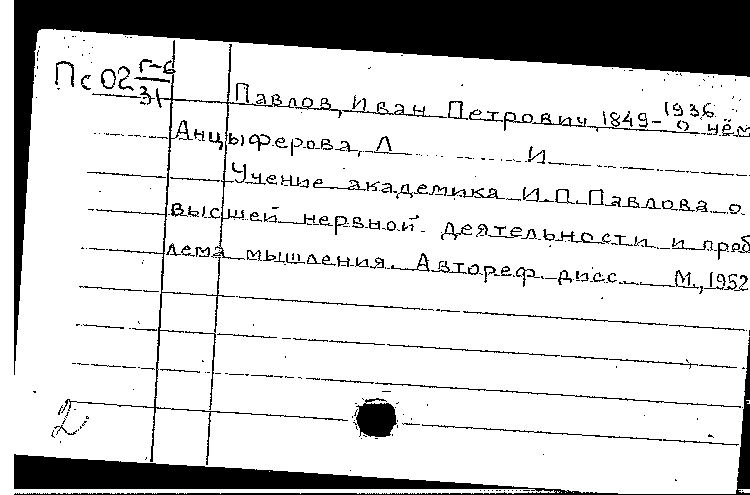 Пс 02 г-6
31
Павлов, Иван Петрович, 1849-1936 о нём
Анцыферова, Л И
Учение академика И.П. Павлова о
высшей нервной деятельности и проб
лема мышления. Автореф. дисс. М., 1952
2